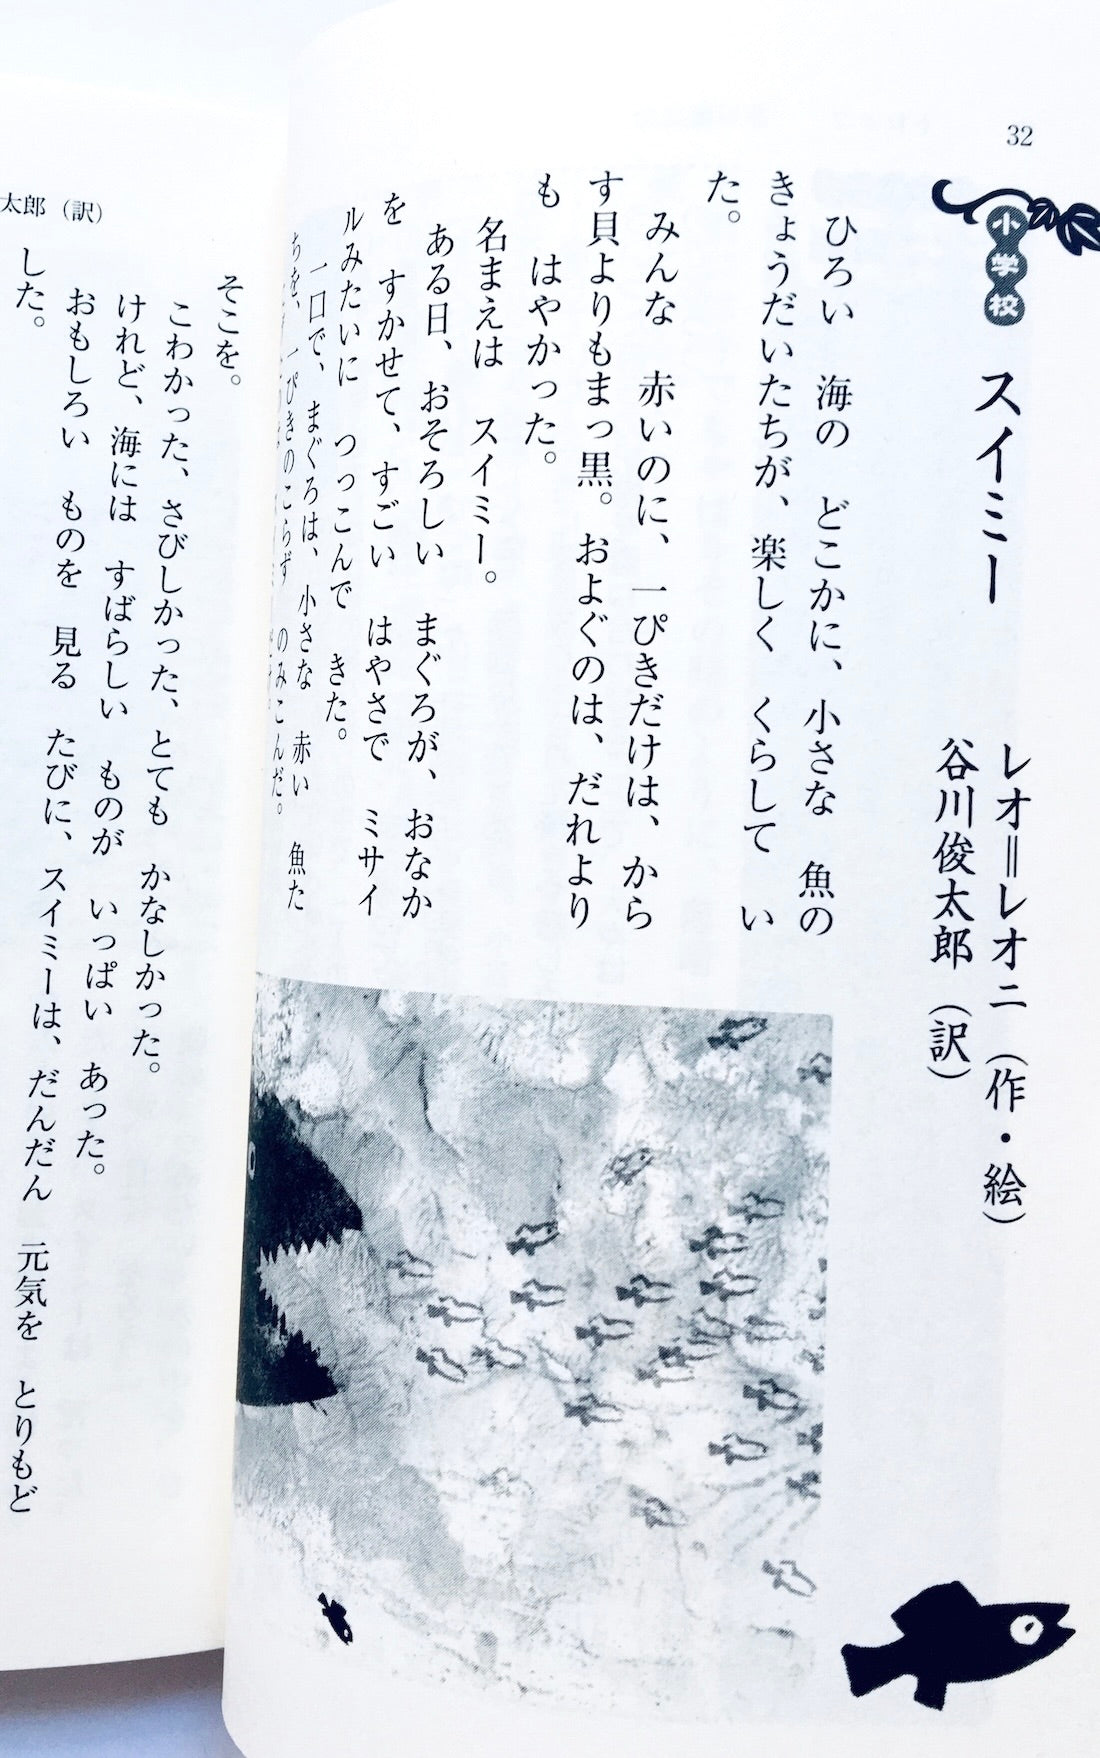 32
小学校
スイミー
レオ＝レオニ（作・絵）
谷川俊太郎（訳）
ひろい　海の　どこかに、小さな　魚の
きょうだいたちが、楽しく　くらして　い
た。
みんな　赤いのに、一ぴきだけは、から
す貝よりもまっ黒。およぐのは、だれより
も　はやかった。
名まえは　スイミー。
ある日、おそろしい　まぐろが、おなか
を　すかせて、すごい　はやさで　ミサイ
ルみたいに　つっこんで　きた。
一口で、まぐろは、小さな　赤い　魚た
ちを、一ぴきのこらず　のみこんだ。
太郎（訳）
そこを。
こわかった、さびしかった、とても　かなしかった。
けれど、海には　すばらしい　ものが　いっぱい　あった。
おもしろい　ものを　見る　たびに、スイミーは、だんだん　元気を　とりもど
した。